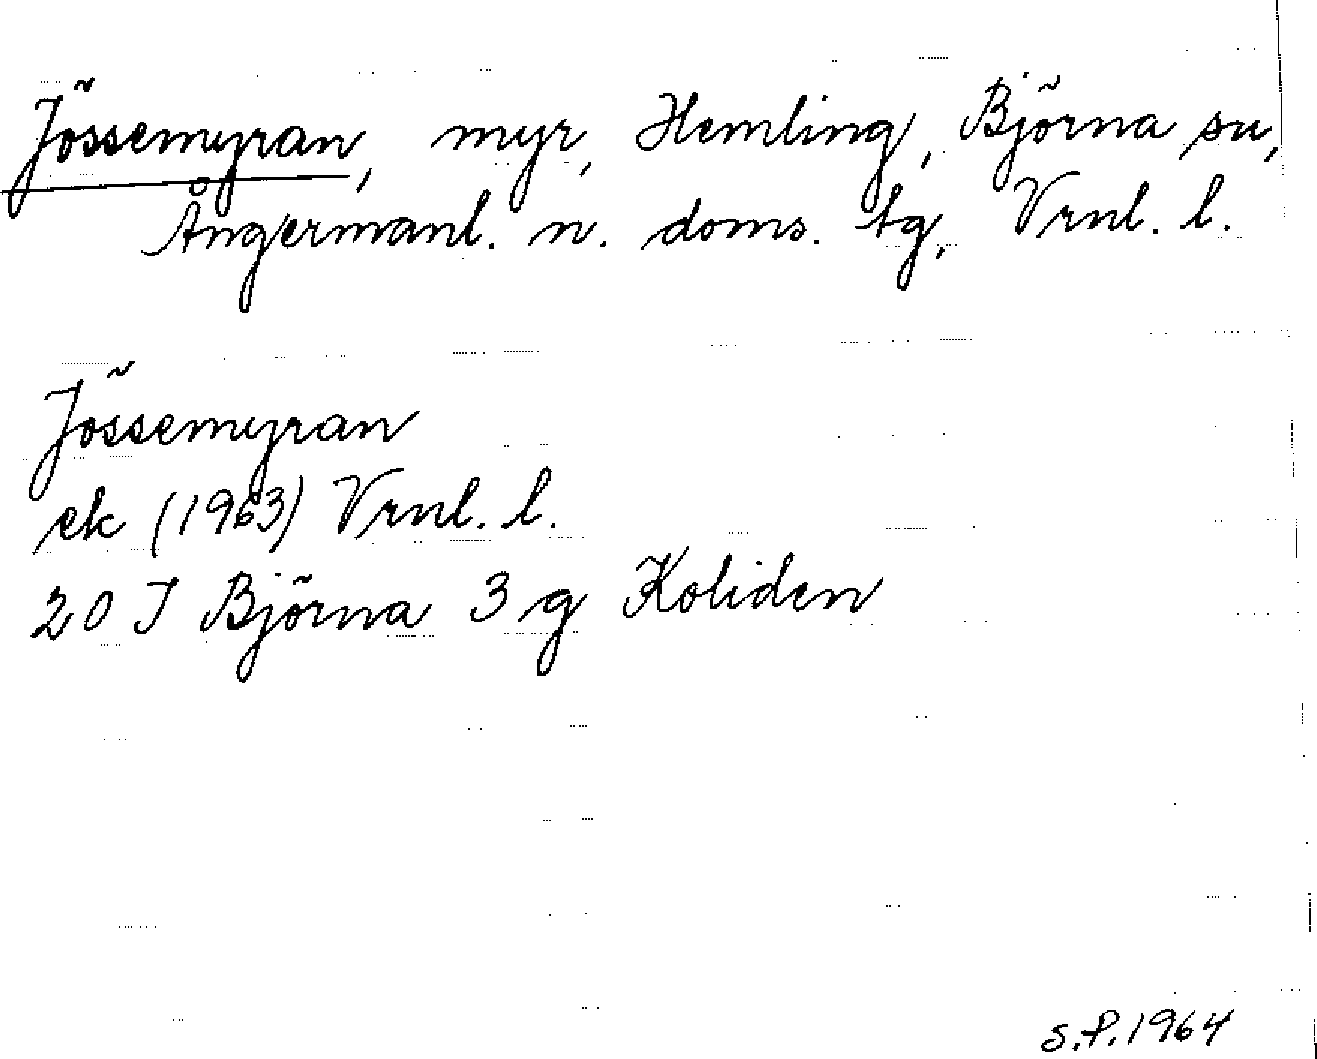 Jössemyran, myr, Hemling, Björna sn,
Ångermanl. n. doms. tg, Vrnl. l.
Jössemyran
ek (1963) Vrnl. l.
20 I Björna 3 g Koliden
S.P. 1964